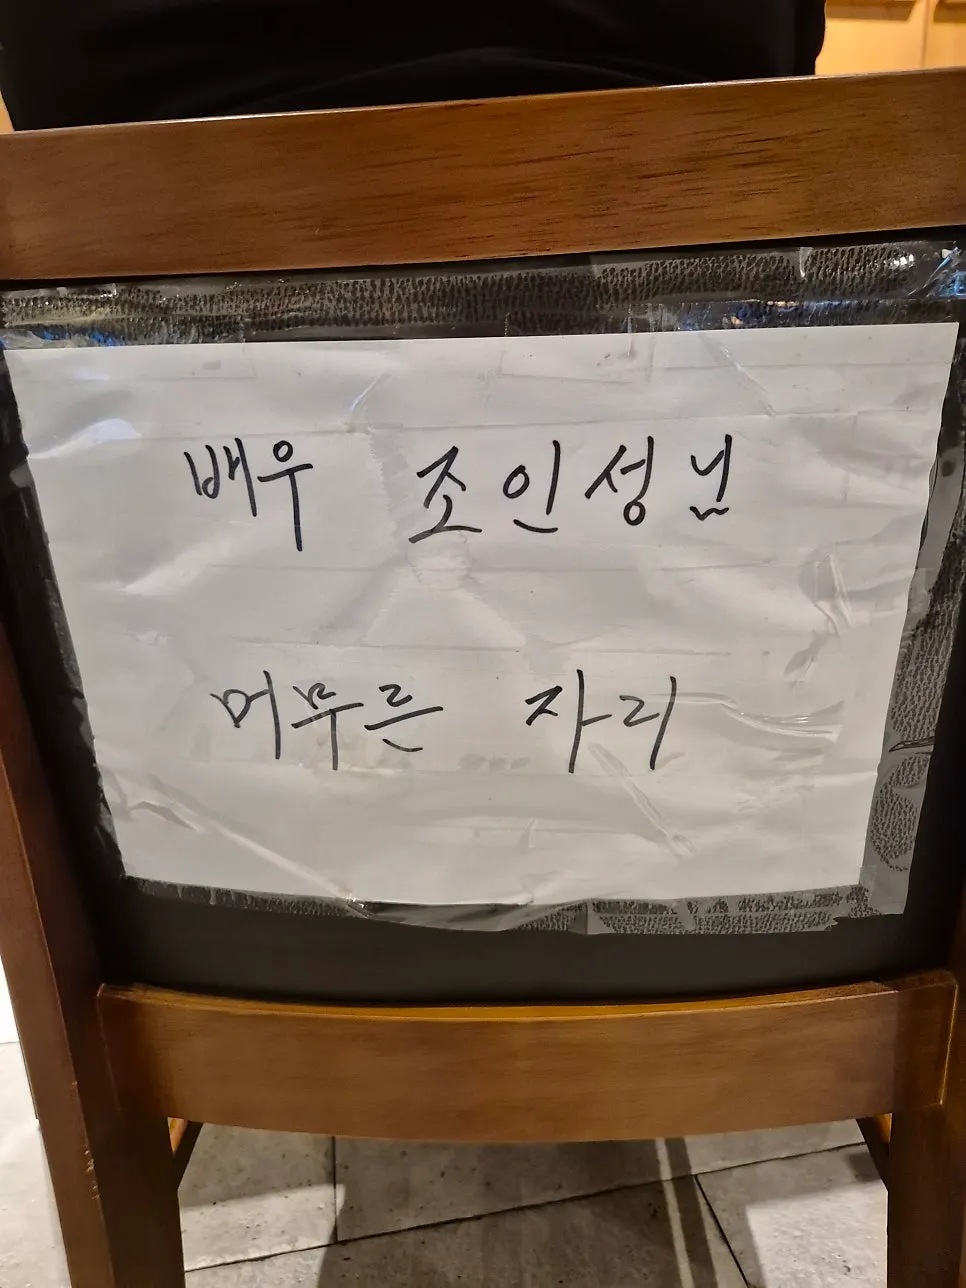 배우 조인성님
머무른 자리